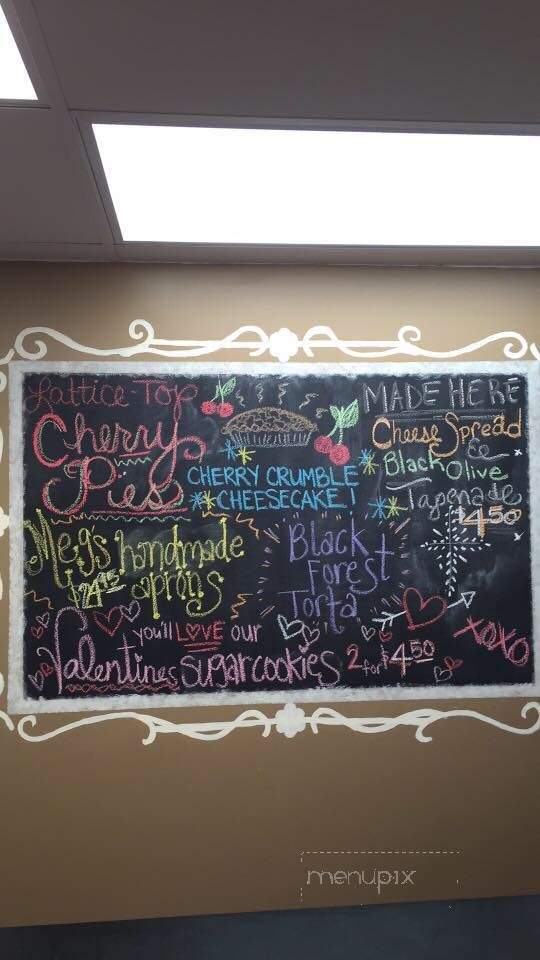 Lattice-Top
Cherry
Pies
CHERRY CRUMBLE
CHEESECAKE!
MADE HERE
Cheese Spread
&
Black Olive
Tapenade
$4.50
Meg's handmade
$24.95 aprons
Black
Forest
Torta
you'll LOVE our
Valentines sugar cookies 2 for $4.50
XOXO
menupix